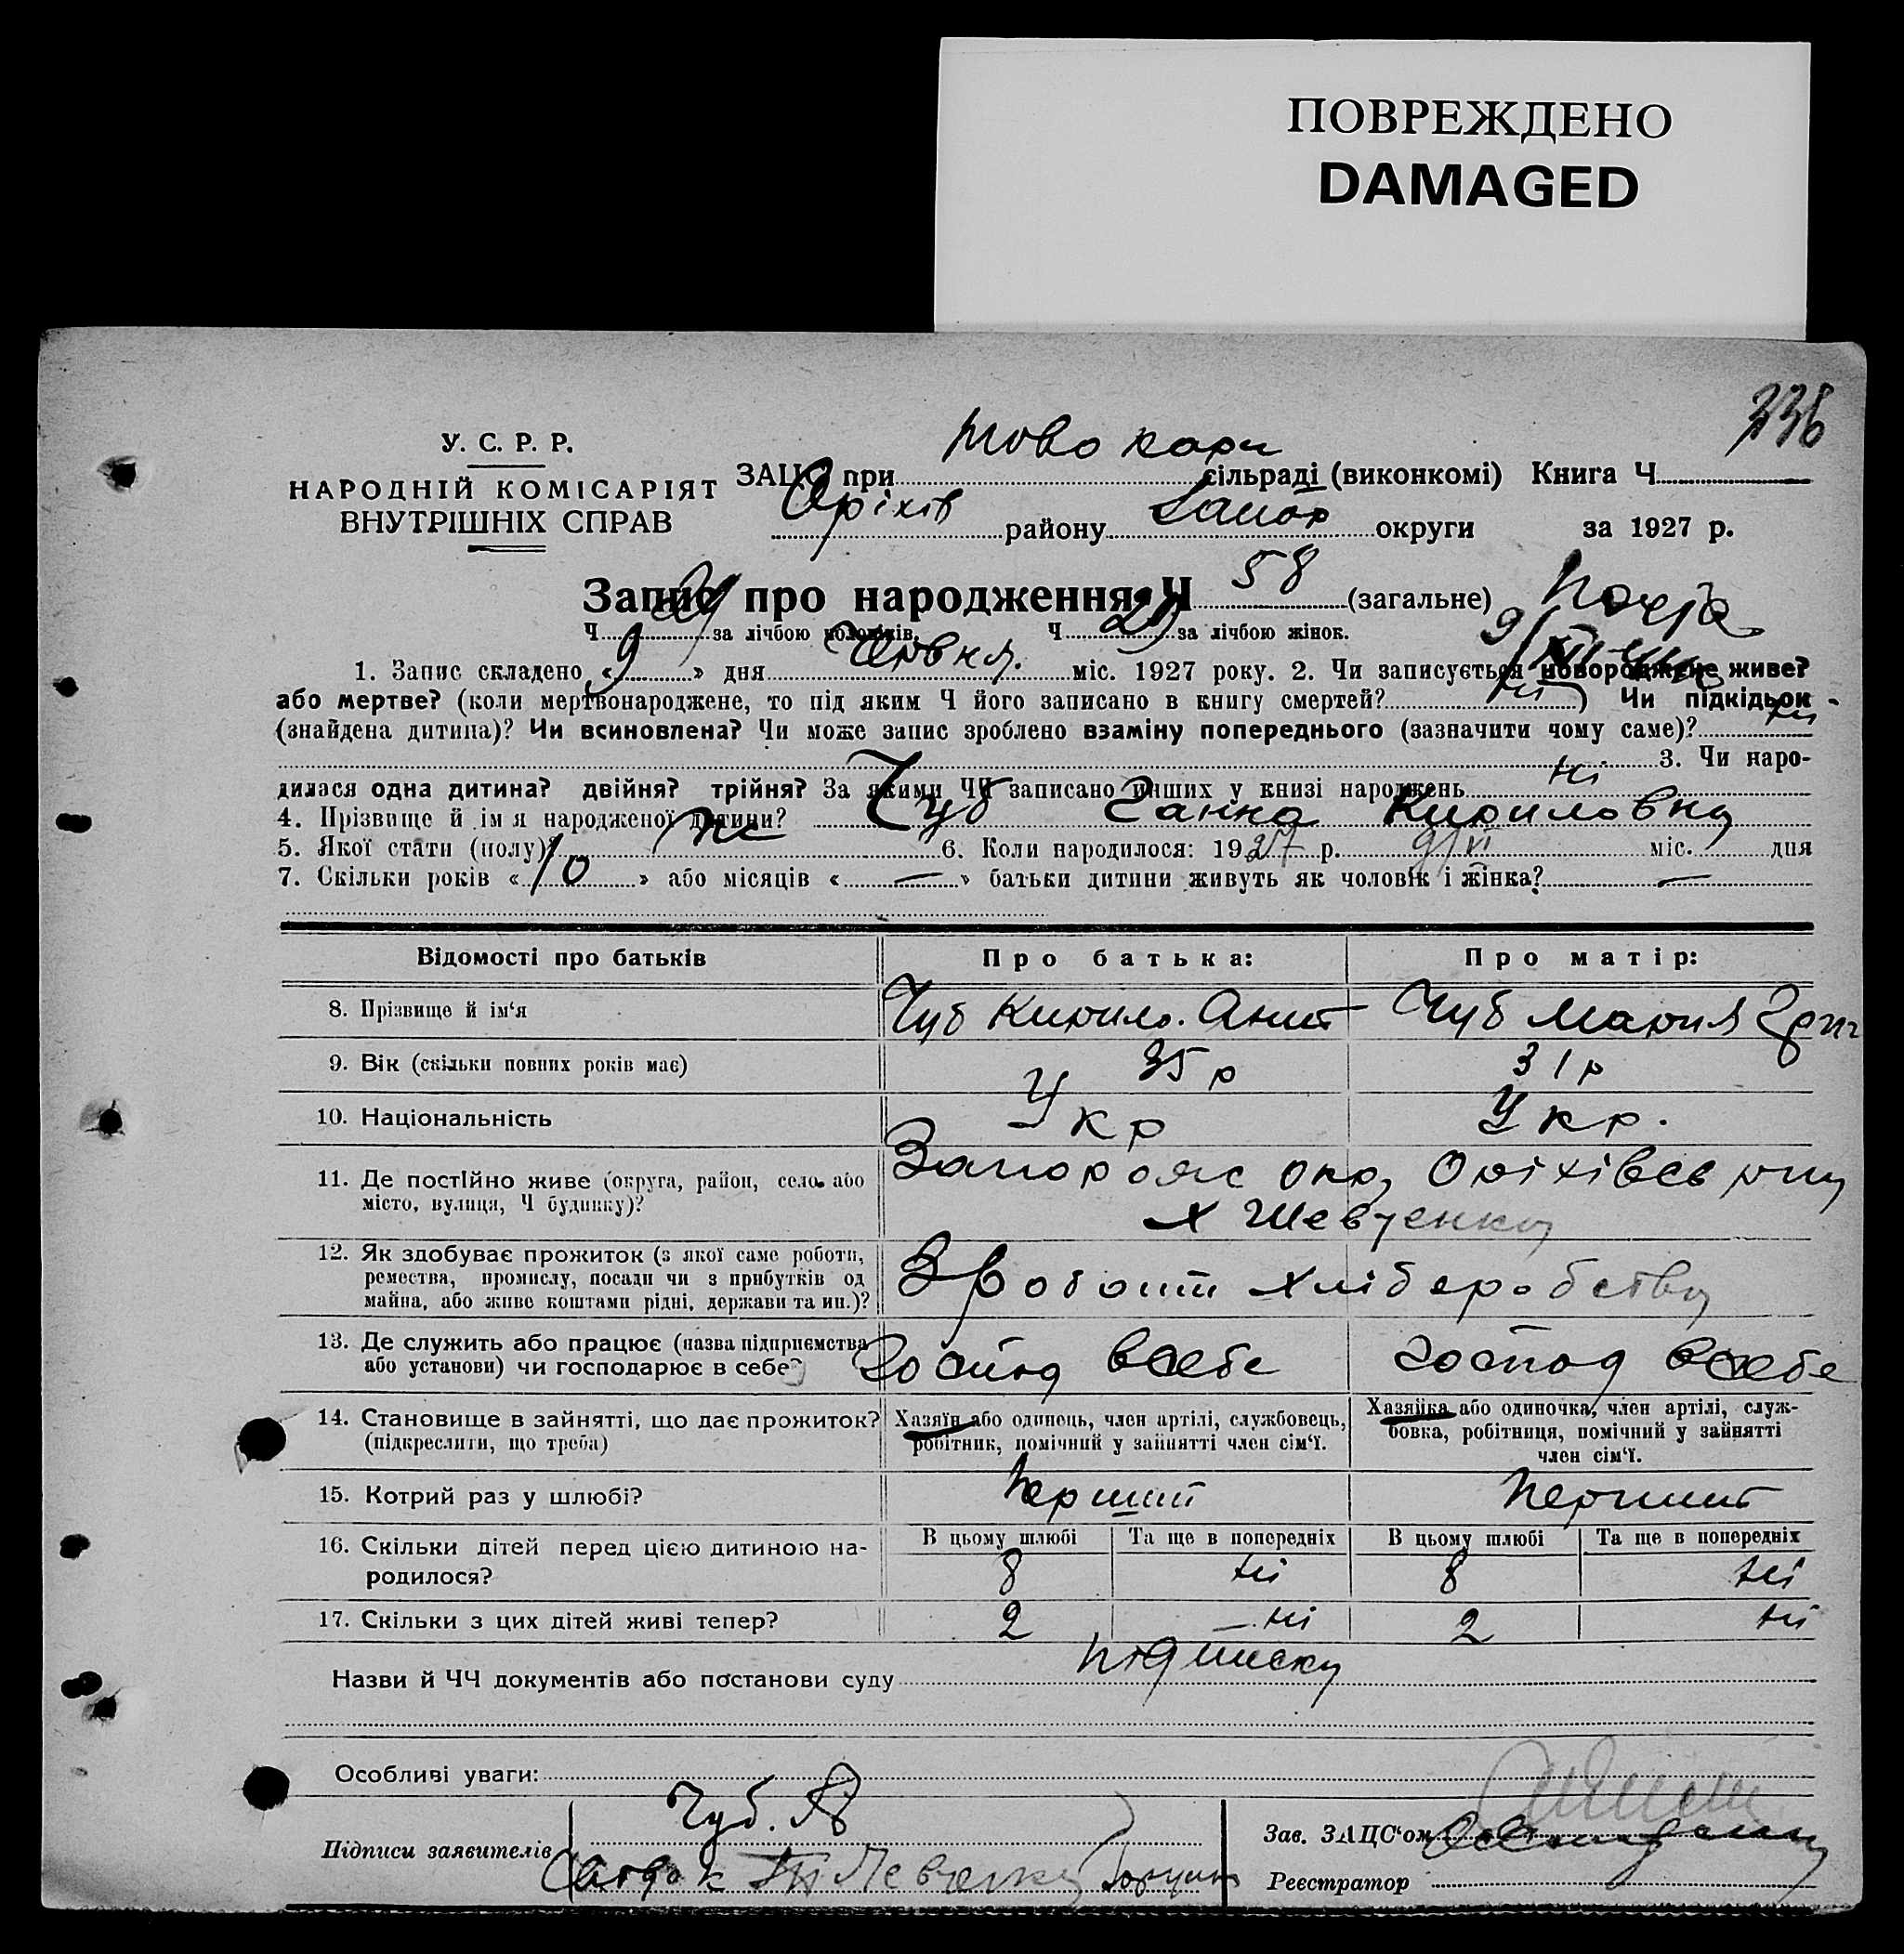 ПОВРЕЖДЕНО
DAMAGED
336
У. С. Р. Р.
НАРОДНІЙ КОМІСАРІЯТ
ВНУТРІШНІХ СПРАВ
ЗАЦС при Ново кари сільраді (виконкомі) Книга Ч
Оріхів району Запор округи за 1927 р.
Запис про народження Ч 58 (загальне)
Ч за лічбою чоловіків. Ч 29 за лічбою жінок.
1. Запис складено « 9 » дня Червня міс. 1927 року. 2. Чи записується новороджене живе?
або мертве? (коли мертвонароджене, то під яким Ч його записано в книгу смертей? ні ) Чи підкідьок
(знайдена дитина)? Чи всиновлена? Чи може запис зроблено взаміну попереднього (зазначити чому саме)? ні
3. Чи наро-
дилася одна дитина? двійня? трійня? За якими ЧЧ записано инших у книзі народжень ні
4. Прізвище й ім я народженої дитини? Чуб Ганна Кириловна
5. Якої стати (полу)? ж 6. Коли народилося: 1927 р. 9/VI міс. дня
7. Скільки років « 10 » або місяців « — » батьки дитини живуть як чоловік і жінка? —
Відомості про батьків Про батька: Про матір:
8. Прізвище й ім‘я Чуб Кирило. Ант Чуб Мария Григ
9. Вік (скільки повних років має) 35 р 31 р
10. Національність Укр Укр.
11. Де постійно живе (округа, район, село або Запорожс окр, Оріхівсв рну
місто, вулиця, Ч будинку)? х Шевченко
12. Як здобуває прожиток (з якої саме роботи,
ремества, промислу, посади чи з прибутків од З роботи хліберобства
майна, або живе коштами рідні, держави та ин.)?
13. Де служить або працює (назва підприємства
або установи) чи господарює в себе? Господ всебе Господ всебе
14. Становище в зайнятті, що дає прожиток? Хазяїн або одинець, член артілі, службовець, Хазяйка або одиночка, член артілі, служ-
(підкреслити, що треба) робітник, помічний у зайнятті член сім‘ї. бовка, робітниця, помічний у зайнятті
член сім‘ї.
15. Котрий раз у шлюбі? Перший Перший
16. Скільки дітей перед цією дитиною на- В цьому шлюбі Та ще в попередніх В цьому шлюбі Та ще в попередніх
родилося? 8 ні 8 ні
17. Скільки з цих дітей живі тепер? 2 ні 2 ні
Назви й ЧЧ документів або постанови суду підписку
Особливі уваги:
Підписи заявителів Чуб.
Зав. ЗАЦС‘ом
Реєстратор